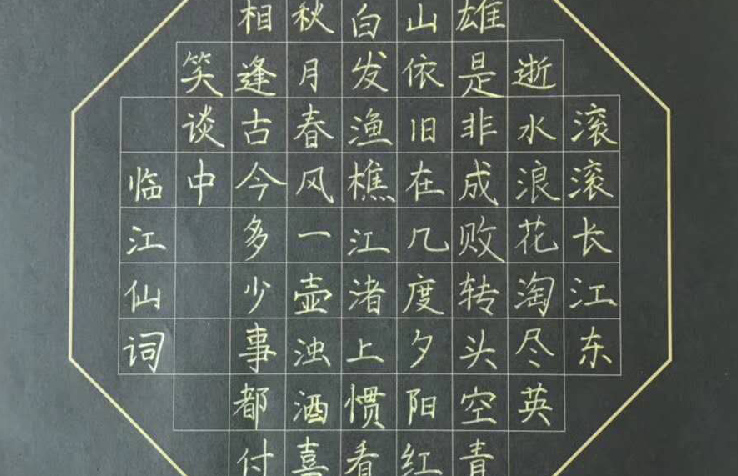 滚滚长江东
逝水浪花淘尽英
雄是非成败转头空青
山依旧在几度夕阳红
白发渔樵江渚上惯看
秋月春风一壶浊酒喜
相逢古今多少事都付
笑谈中
临江仙词